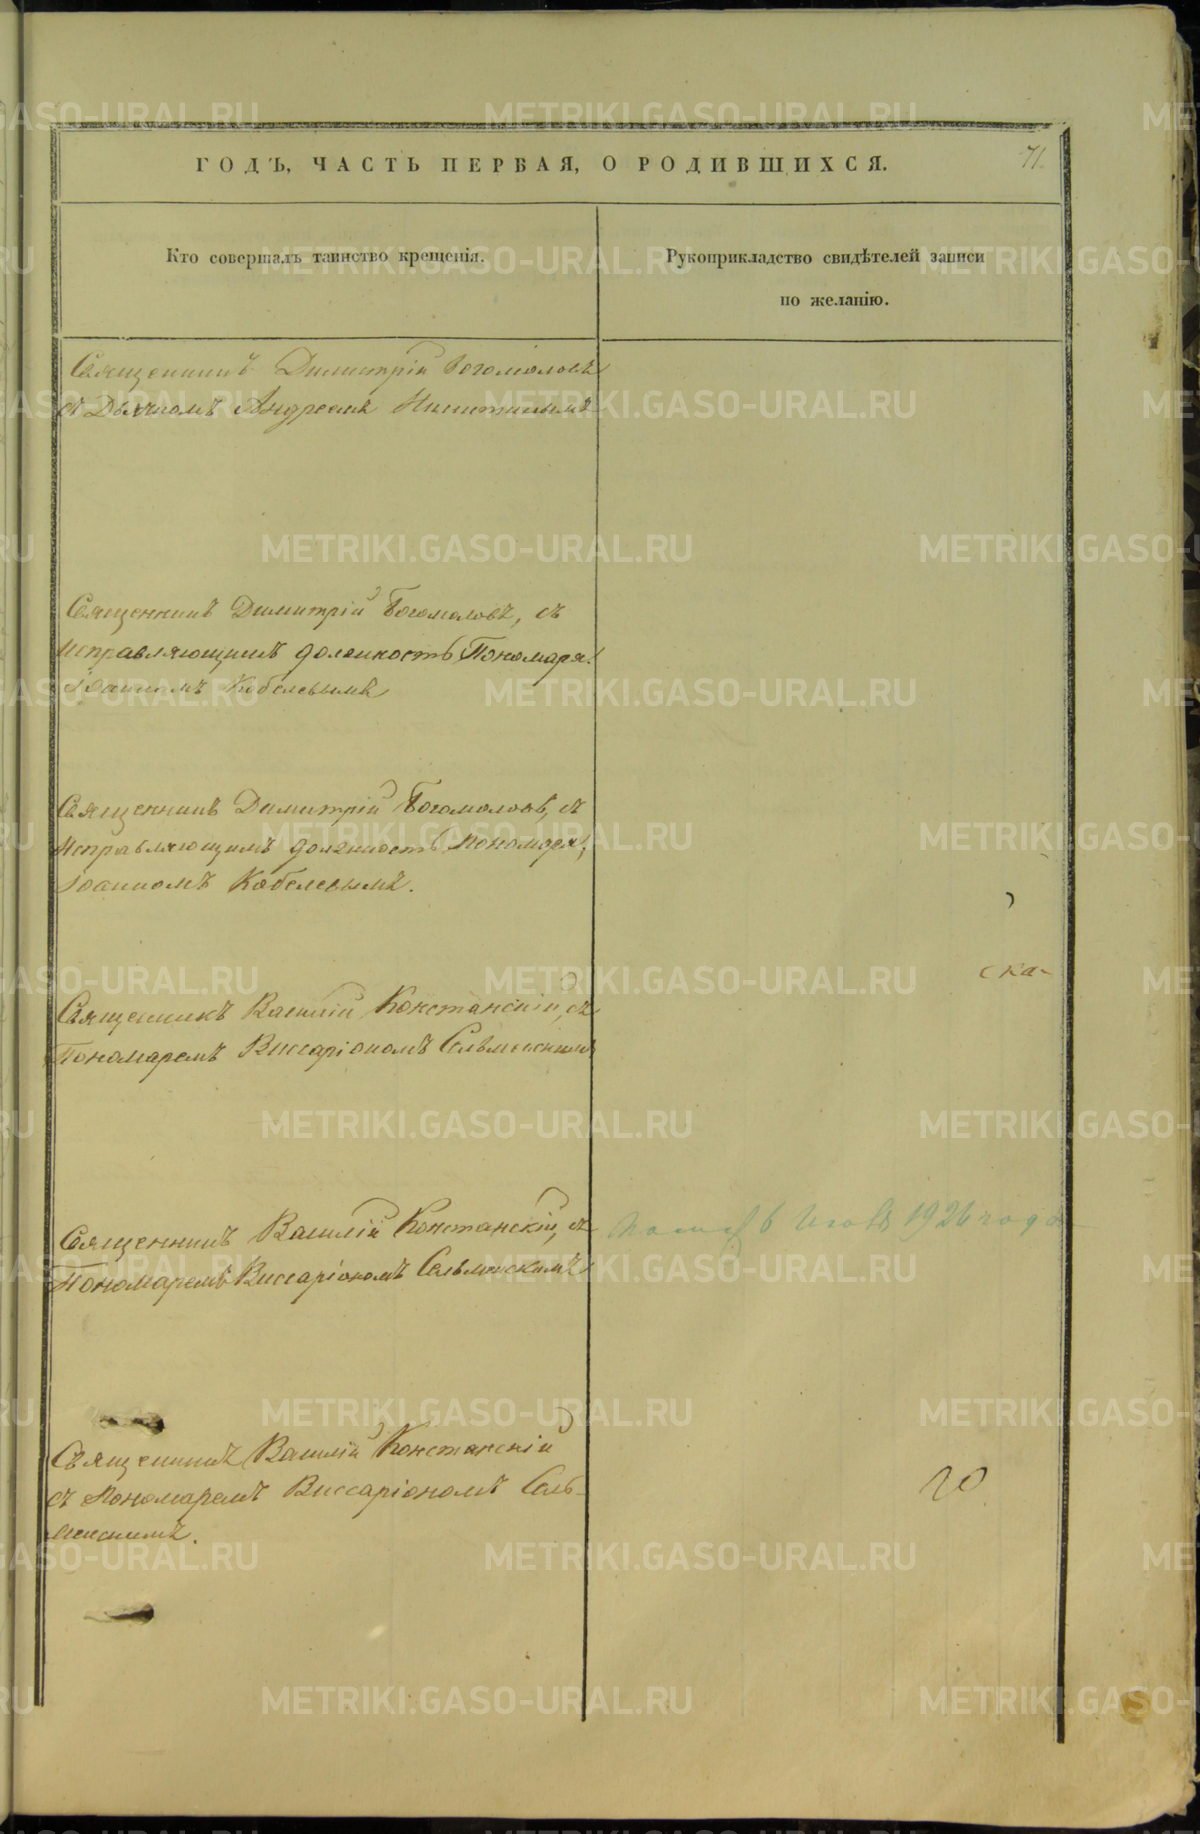 ГОДЪ, ЧАСТЬ ПЕРВАЯ, О РОДИВШИХСЯ.
71.
Кто совершалъ таинство крещенія.
Рукоприкладство свидѣтелей записи
по желанію.
Священникъ Димитрій Богомоловъ
съ Дьячкомъ Андреемъ Никитинымъ
Священникъ Димитрій Богомоловъ, съ
Исправляющимъ должность Пономаря
Іоанномъ Кобелевымъ
Священникъ Димитрій Богомоловъ, съ
Исправляющимъ должность Пономаря,
Іоанномъ Кобелевымъ.
ска-
Священникъ Василій Констанскій, съ
Пономаремъ Виссаріономъ Сельменскимъ
Священникъ Василій Констанскій, съ
Пономаремъ Виссаріономъ Сельменскимъ
6 1926 года
Священникъ Василій Констанскій
съ Пономаремъ Виссаріономъ Сель-
менскимъ.
METRIKI.GASO-URAL.RU